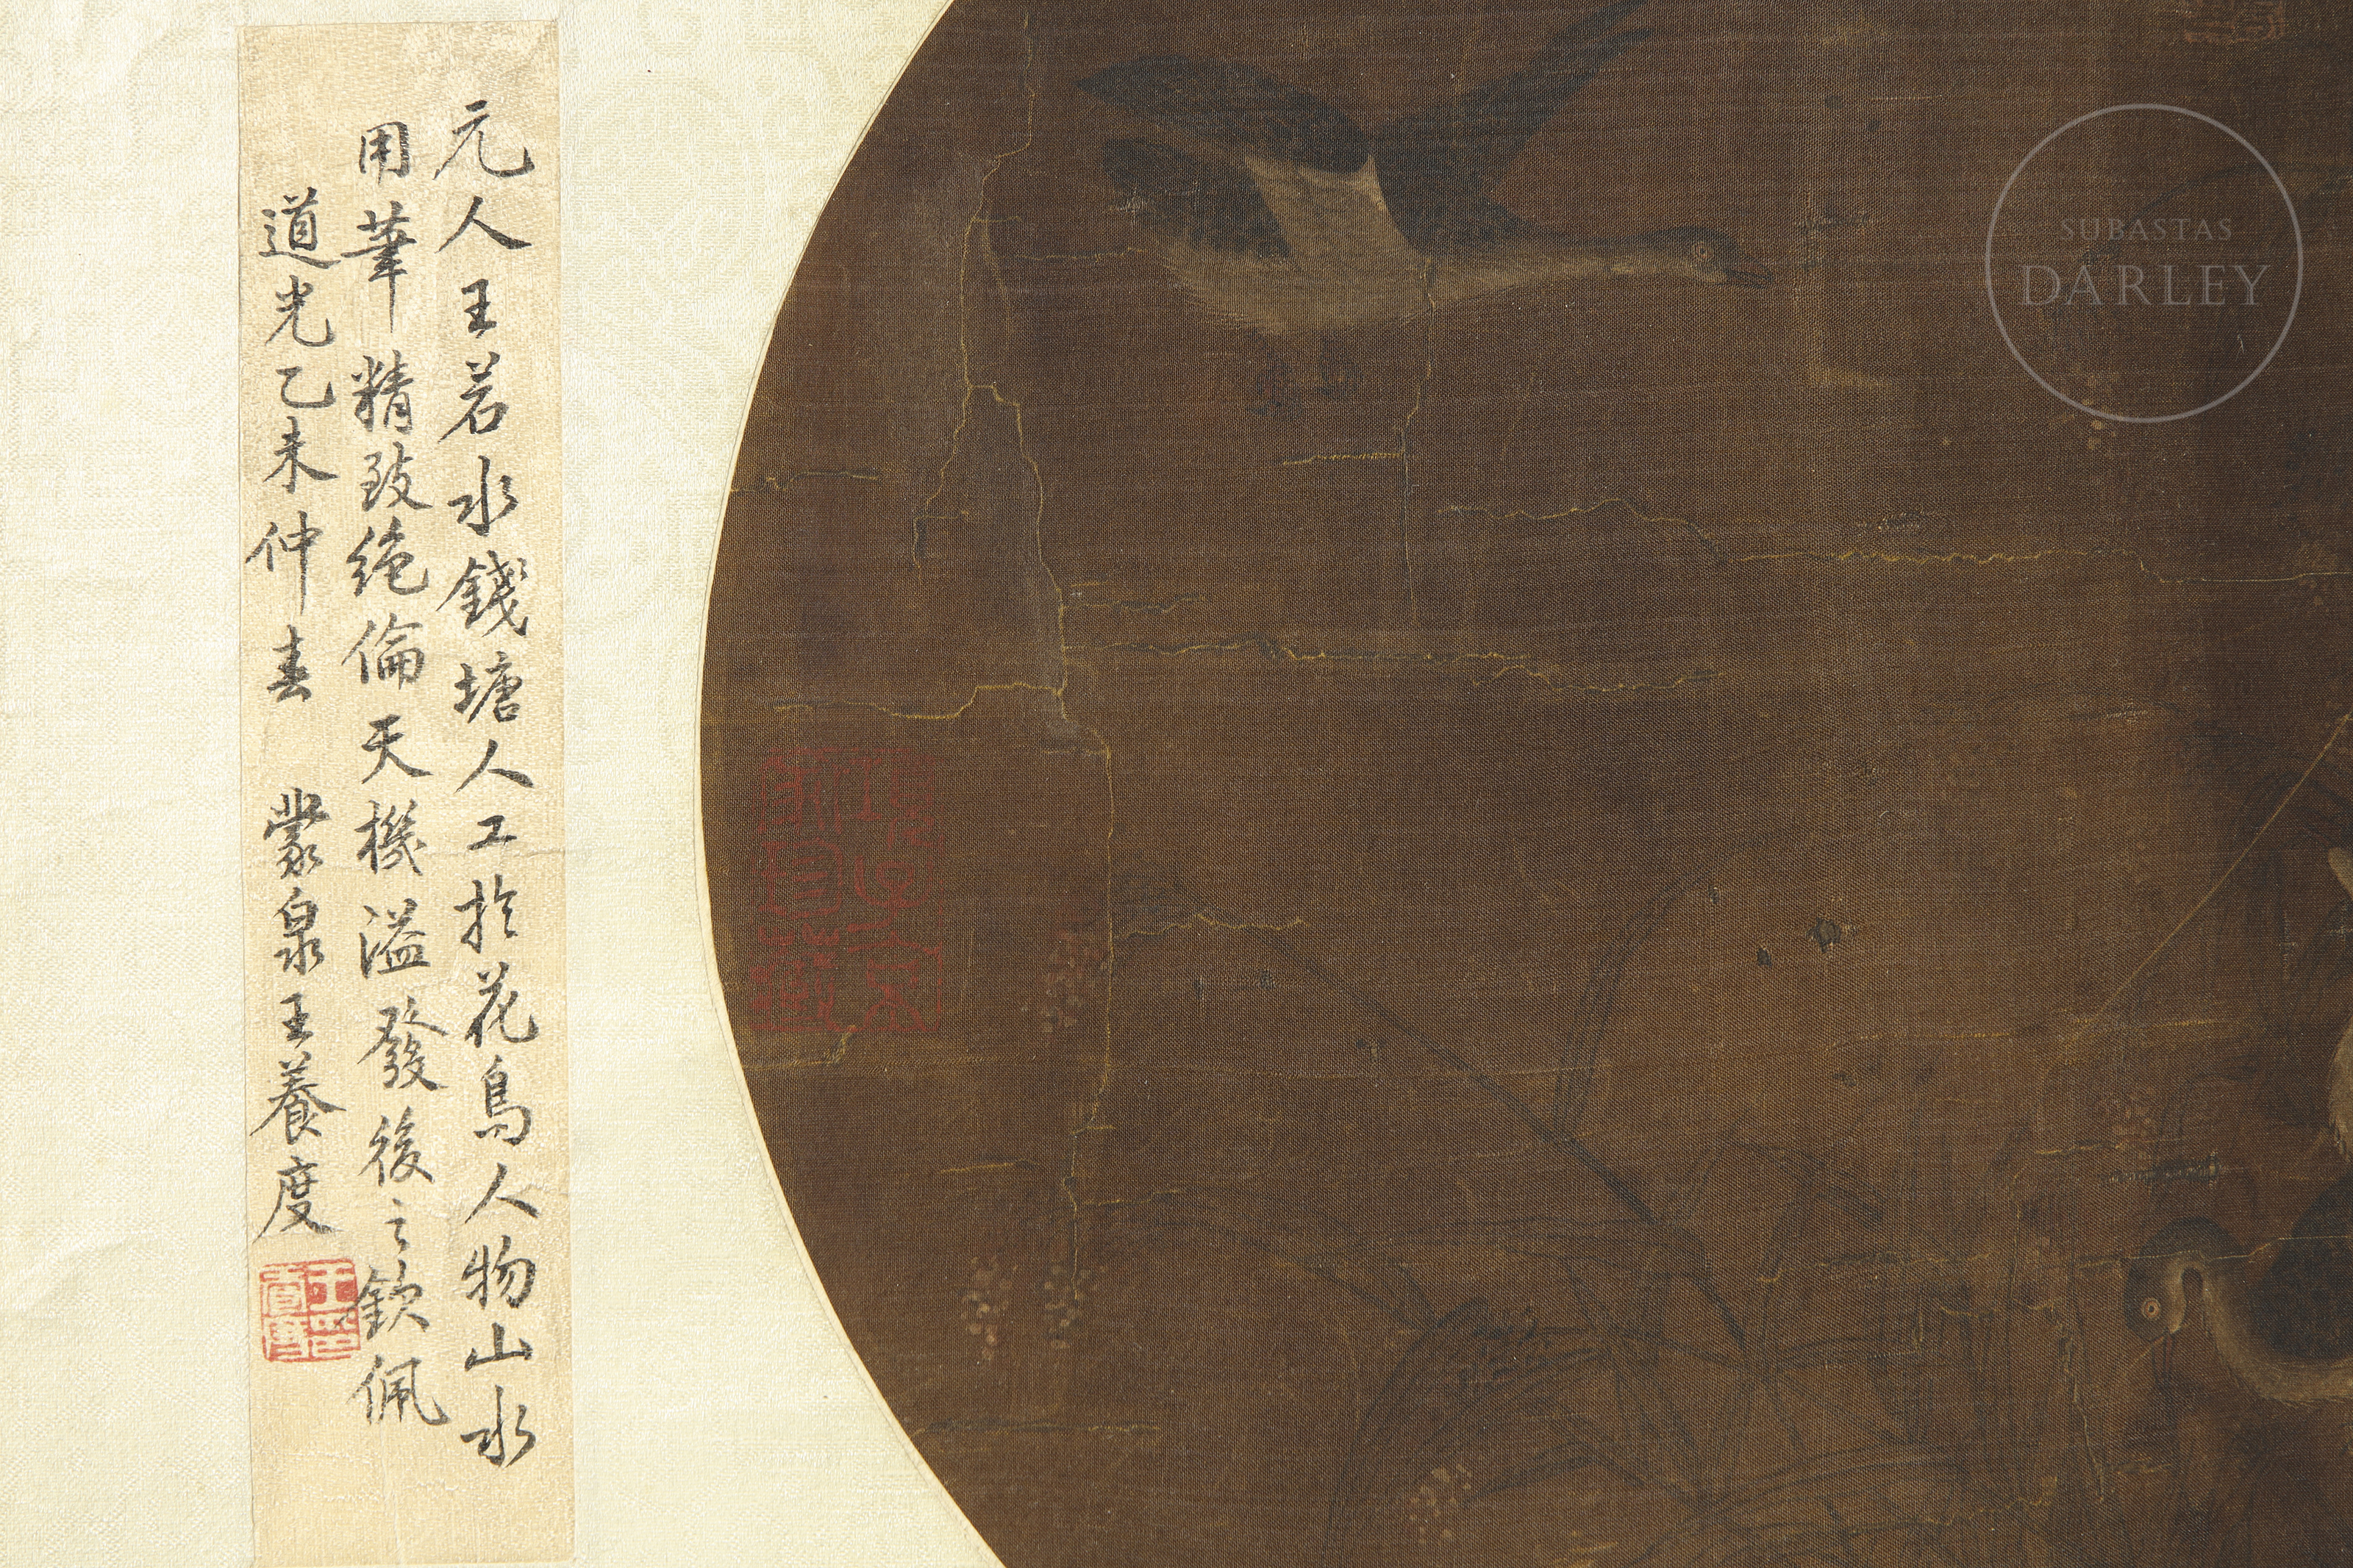 元人王若水錢塘人工於花鳥人物山水
用筆精致絕倫天機溢發後之欽佩
道光乙未仲春 蒙泉王養度
SUBASTAS
DARLEY